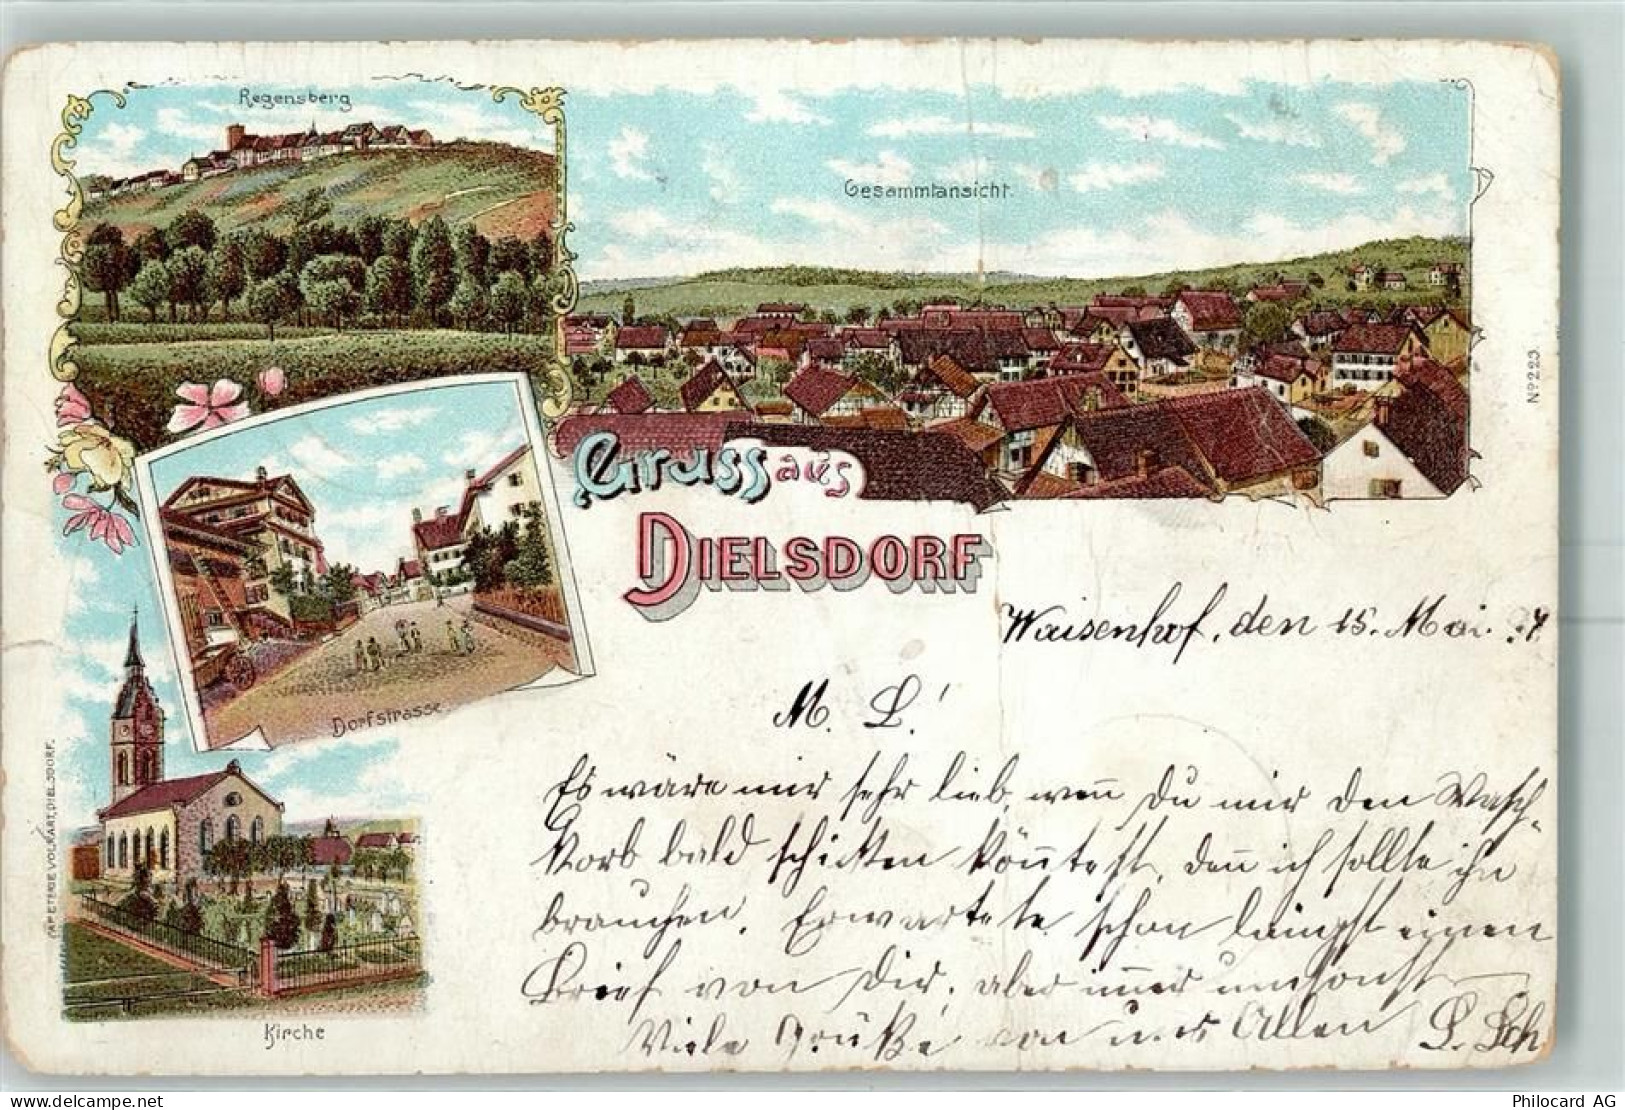 Regensberg
Gesammtansicht.
No 223.
Gruss aus
DIELSDORF
Dorfstrasse
Kirche
PAPETERIE VOLKART, DIELSDORF.
Waisenhof, den 15. Mai
M. L!
Es wäre mir sehr lieb, weñ Du mir den Wasch-
Korb bald schikken köñtest, deñ ich sollte ihn
brauchen. Erwartete schon längst einen
Brief von Dir, aber im̅er umsonst
Viele Grüße von uns Allen L. Sch.
Philocard AG
https://www.delcampe.net